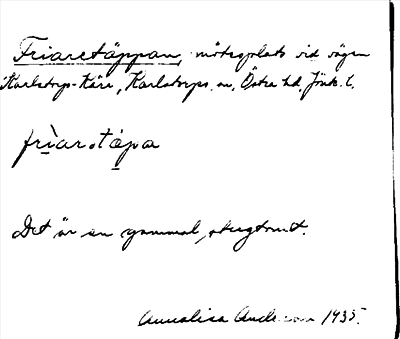 Friaretäppan, mötesplats vid vägen
Karlstorp-Kåre, Karlstorps sn, Östra hd, Jönk. l.
friar.täpa
Det är en gammal, stugtomt.
Annalisa Anderson 1935.